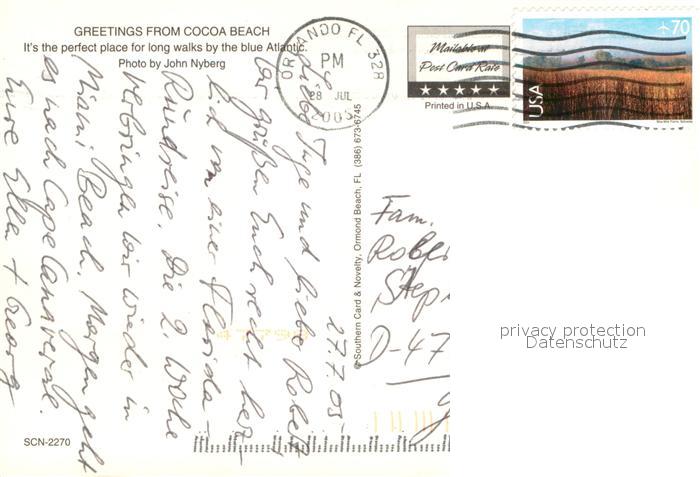 GREETINGS FROM COCOA BEACH
It's the perfect place for long walks by the blue Atlantic.
Photo by John Nyberg
ORLANDO FL 328
PM
28 JUL
2005
Mailable at
Post Card Rate
Printed in U.S.A.
70
USA
27.7.05
Liebe Inge und lieber Robert
wir grüßen Euch recht herz-
lich von einer Florida-
Rundreise. Die 2. Woche
verbringen wir wieder in
Miami Beach. Morgen geht
es nach Cape Canaveral.
Eure Ella + Georg
© Southern Card & Novelty, Ormond Beach, FL (386) 673-6745
Fam.
Rober
Step
D-47
47798
SCN-2270
privacy protection
Datenschutz